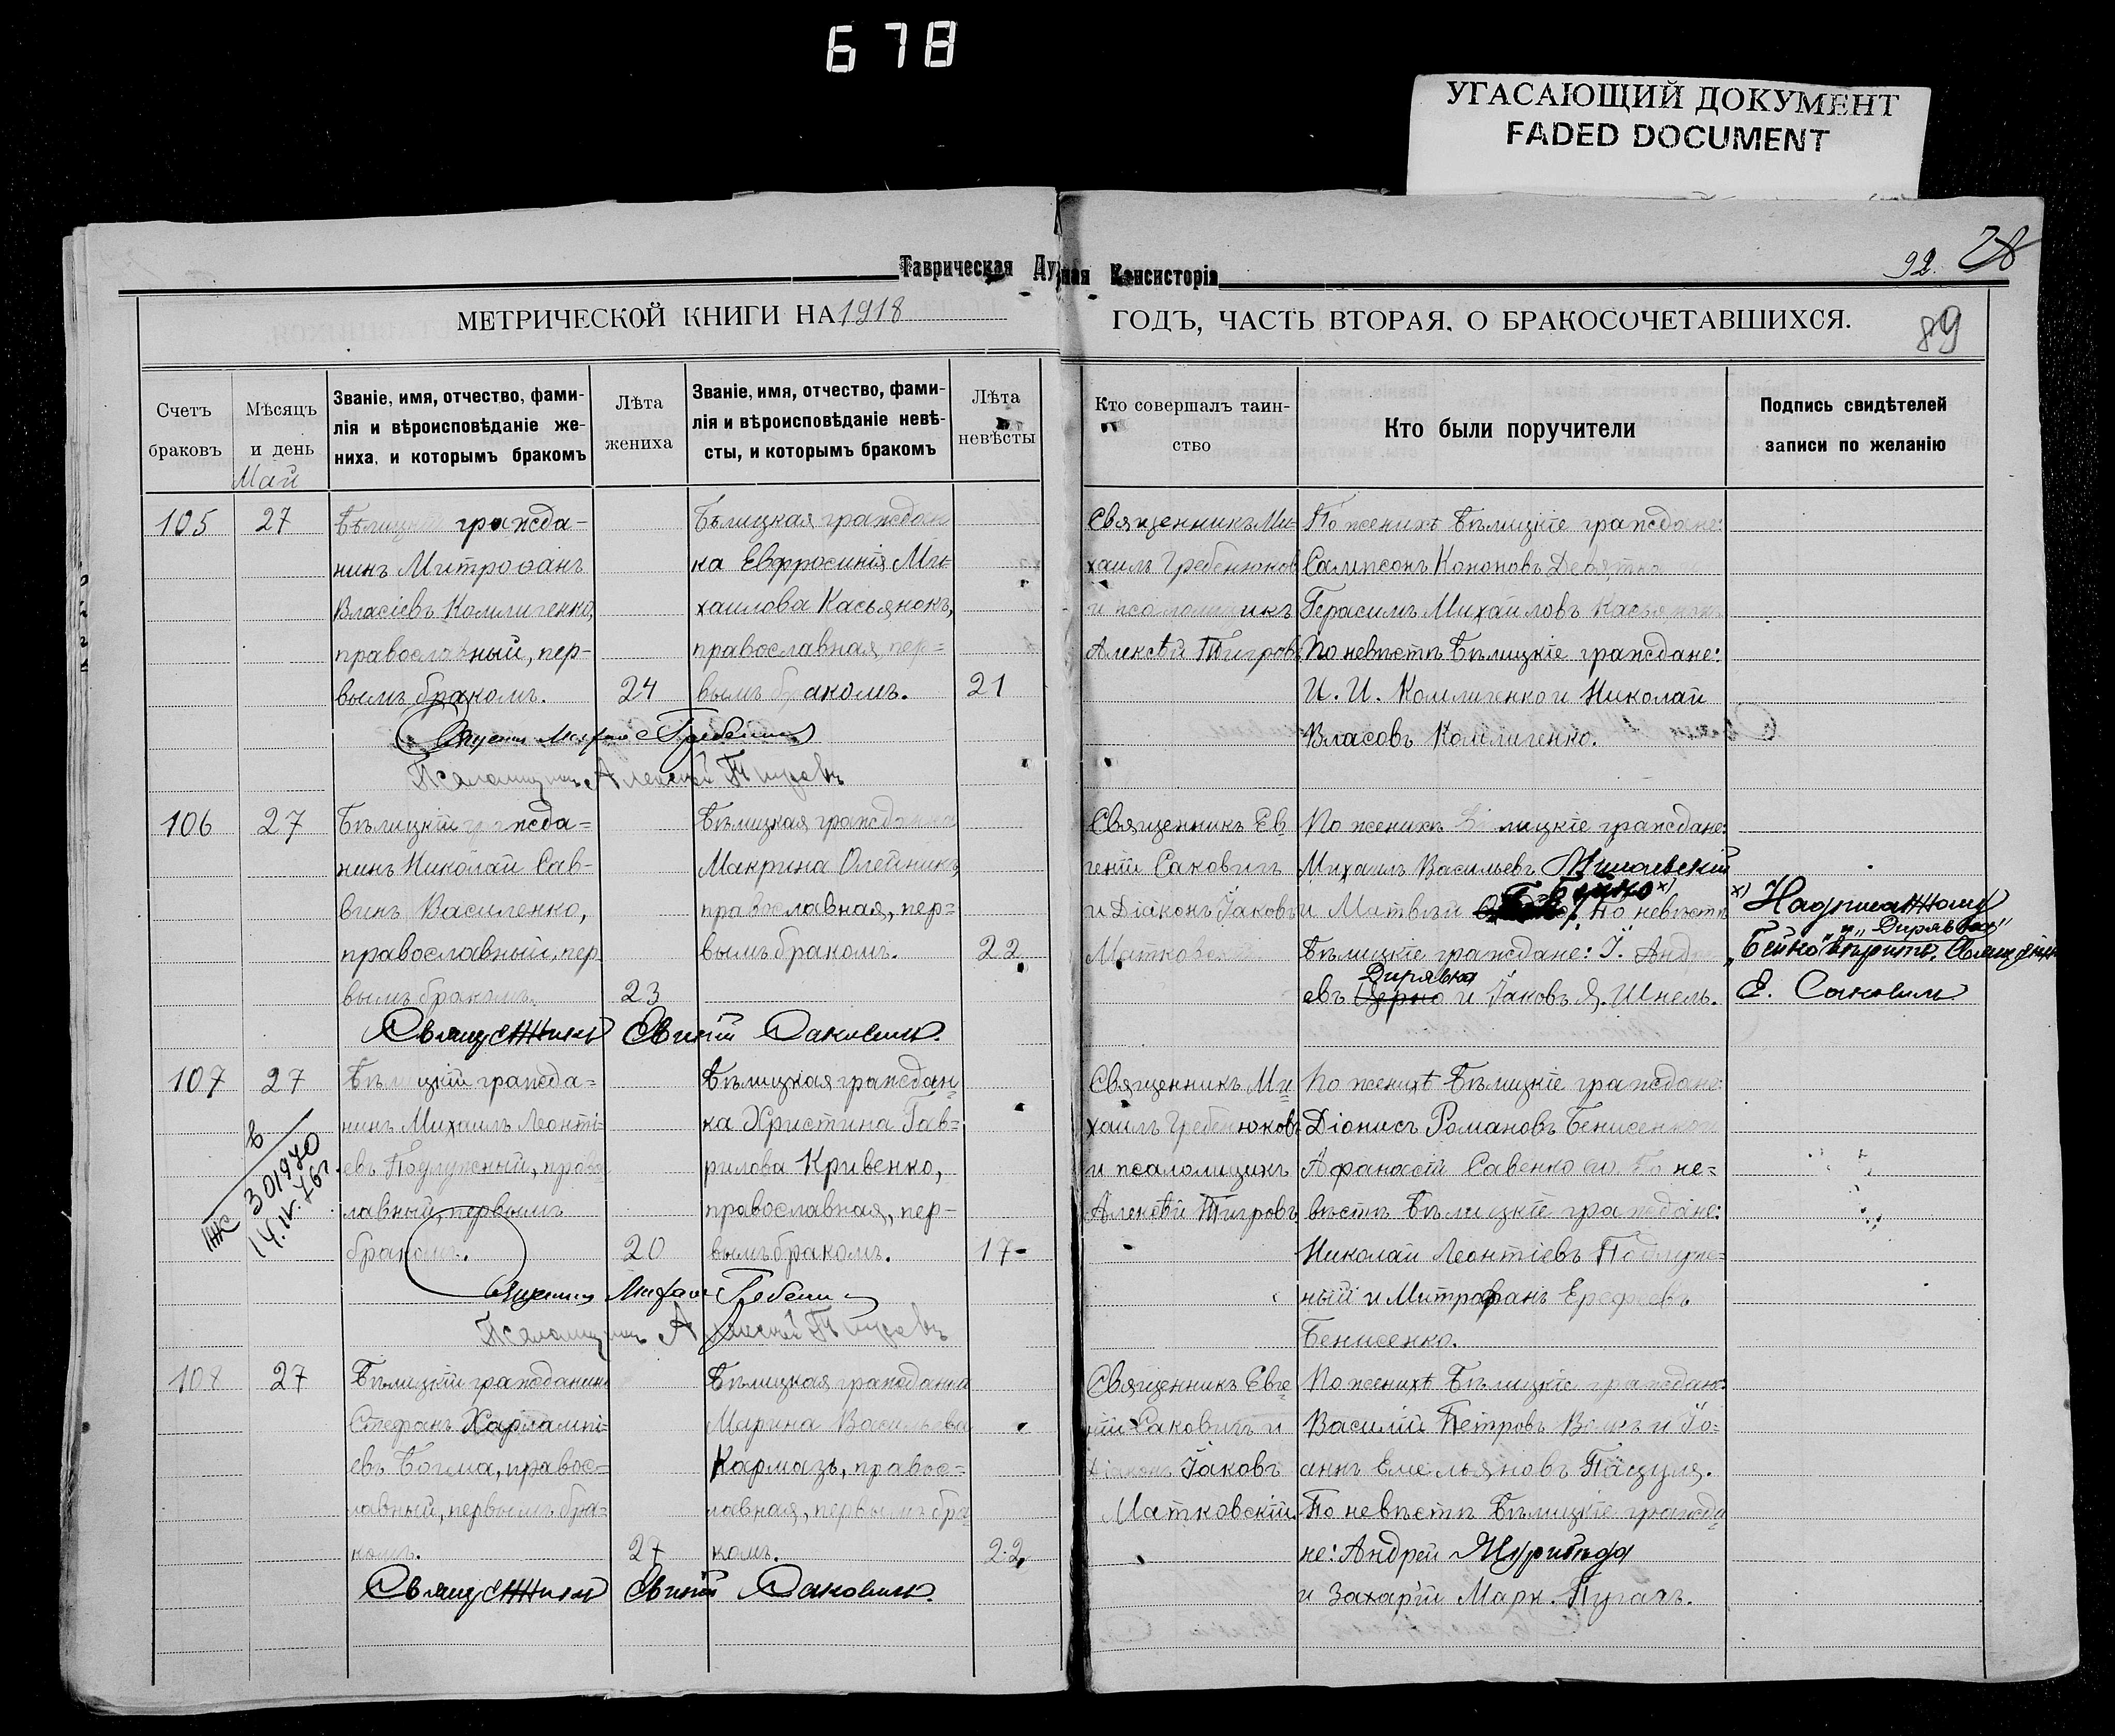 678
УГАСАЮЩИЙ ДОКУМЕНТ
FADED DOCUMENT
Таврическая Духовная Консисторія
92. 28
МЕТРИЧЕСКОЙ КНИГИ НА 1918 ГОДЪ, ЧАСТЬ ВТОРАЯ, О БРАКОСОЧЕТАВШИХСЯ.
89
Счетъ браковъ
Мѣсяцъ и день
Званіе, имя, отчество, фами-
лія и вѣроисповѣданіе же-
ниха, и которымъ бракомъ
Лѣта жениха
Званіе, имя, отчество, фами-
лія и вѣроисповѣданіе невѣ-
сты, и которымъ бракомъ
Лѣта невѣсты
Кто совершалъ таин-
ство
Кто были поручители
Подпись свидѣтелей
записи по желанію
Май
105
27
Бѣлицкій гражда-
нинъ Митрофанъ
Власіевъ Компиченко,
православный, пер-
вымъ бракомъ.
24
Бѣлицкая граждан
ка Евфросинія Ми-
хаилова Касьянокъ,
православная, пер=
вымъ бракомъ.
21
Священникъ Ми-
хаилъ Гребенюковъ
и псаломщикъ
Алексѣй Тигровъ
По женихѣ Бѣлицкіе граждане:
Сампсонъ Кононовъ
Герасимъ Михайловъ Касьянокъ
По невѣстѣ Бѣлицкіе граждане:
И. И. Компиченко и Николай
Власовъ Компиченко.
Псаломщикъ Алексѣй Тигровъ
106
27
Бѣлицкій гражда=
нинъ Николай Сав-
винъ Василенко,
православный, пер
вымъ бракомъ.
23
Бѣлицкая гражданка
Макрина Олейникъ,
православная, пер=
вымъ бракомъ.
22
Священникъ Ев
геній Саковичъ
и Діаконъ Іаковъ
Матковскій
По женихѣ Бѣлицкіе граждане:
Михаилъ Васильевъ
и Матвѣй Бейко х) По невѣстѣ
Бѣлицкіе граждане: І. Андре
евъ Дирявка и Іаковъ Я. Шнель.
х) Надписанному
"Бейко" и "Дирявка"
вѣрить. Священникъ
Е. Саковичъ
Священникъ Евгеній Саковичъ.
107
27
В
ЖС 301970
14.IV.76г.
Бѣлицкій гражда=
нинъ Михаилъ Леонті-
евъ Подлужный, право
лавный, первымъ
бракомъ.
20
Бѣлицкая граждан
ка Христина Гав=
рилова Кривенко,
православная, пер-
вымъ бракомъ.
17
Священникъ Ми
хаилъ Гребенюковъ
и псаломщикъ
Алексѣй Тигровъ
По женихѣ Бѣлицкіе граждане:
Діонисъ Романовъ Бенисенко и
Афанасій Савенко По не=
вѣстѣ Бѣлицкіе граждане:
Николай Леонтіевъ Подлуж=
ный и Митрофанъ Ерофеевъ
Бенисенко.
Псаломщикъ Алексѣй Тигровъ
108
27
Бѣлицкій гражданинъ
Стефанъ Харлампі-
евъ Богма, правос=
лавный, первымъ бра=
комъ.
27
Бѣлицкая гражданка
Марина Васильева
Кармазь, правос=
лавная, первымъ бра
комъ.
22
Священникъ Евге
ній Саковичъ и
Діаконъ Іаковъ
Матковскій.
По женихѣ Бѣлицкіе граждане:
Василій Петровъ Волкъ и Іо=
аннъ Емельяновъ Пацуля.
По невѣстѣ Бѣлицкіе гражда
не: Андрей
и Захарій Марк. Пугачъ.
Священникъ Евгеній Саковичъ.